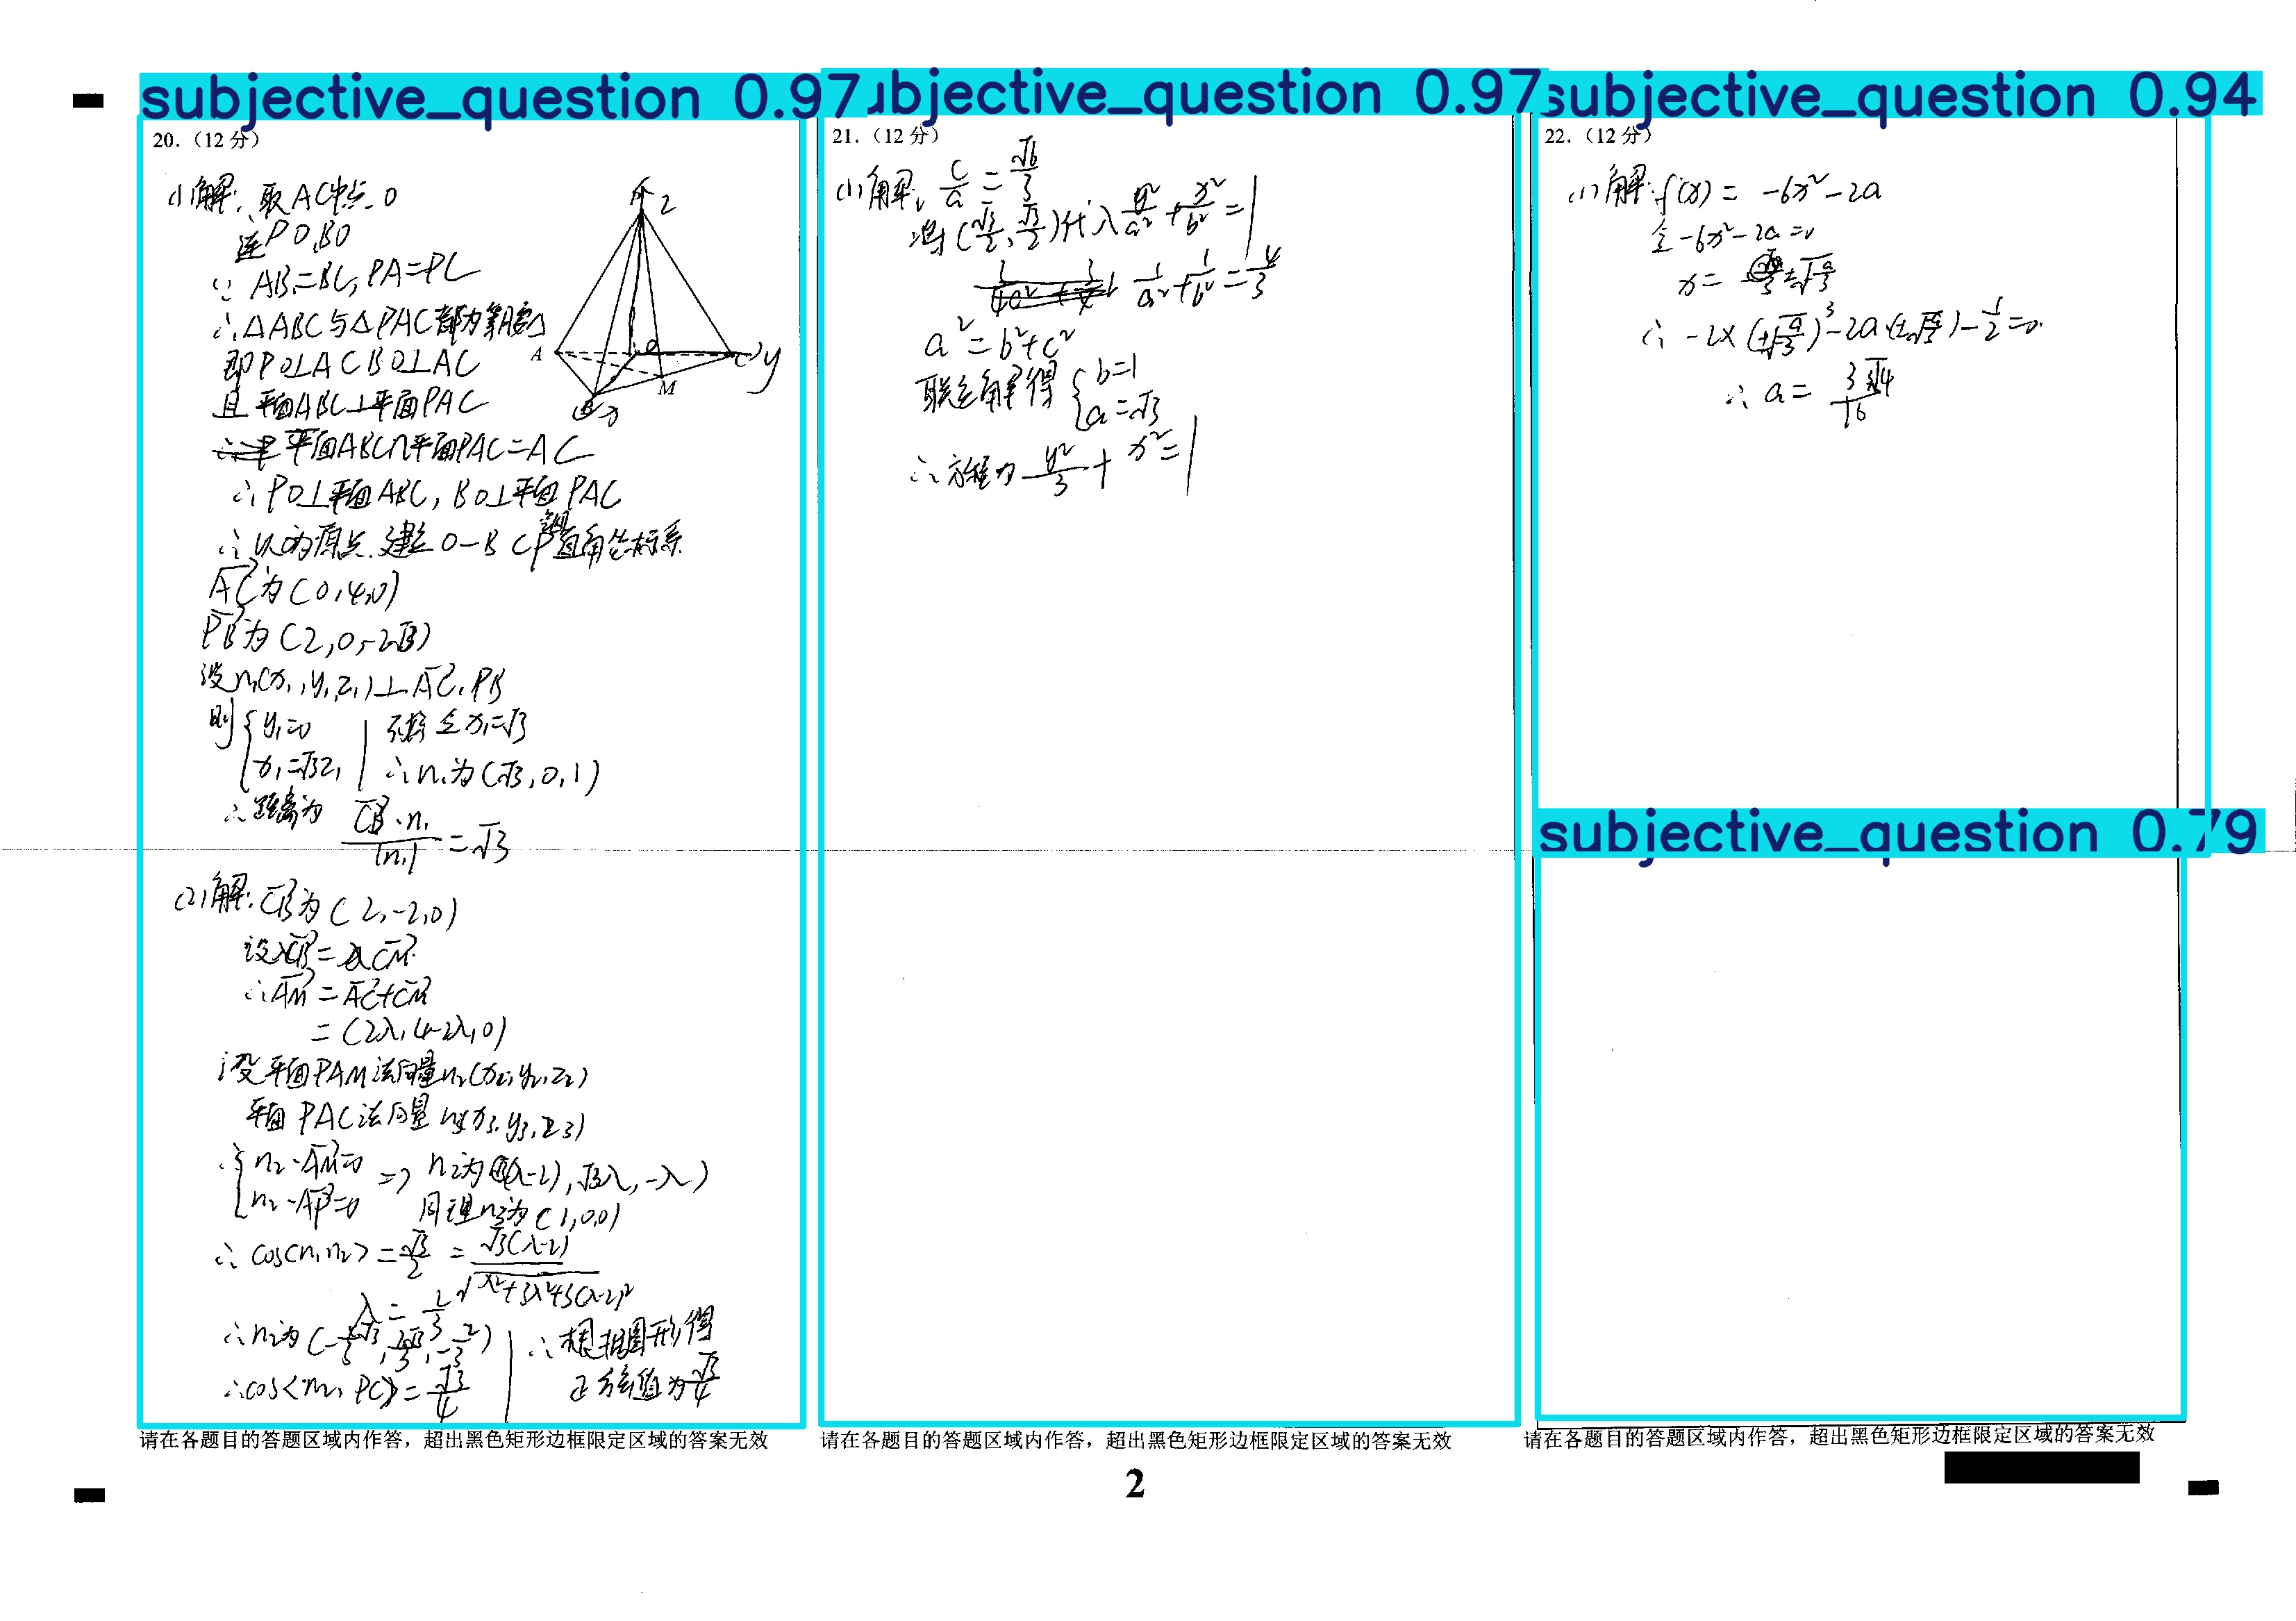 subjective_question 0.97
20.（12 分）
(1)解：取AC中点O
连PO,BO
∵ AB=BC, PA=PC
∴△ABC与△PAC都为等腰△
即PO⊥AC BO⊥AC
且平面ABC⊥平面PAC
平面ABC∩平面PAC=AC
∴PO⊥平面ABC, BO⊥平面PAC
∴以O为原点 建立O-BCP空间直角坐标系
AC为(0,4,0)
PB为(2,0,-2√3)
设n₁(x₁,y₁,z₁)⊥AC,PB
则{y₁=0
x₁=√3z₁
令x₁=√3
∴n₁为(√3,0,1)
∴距离为 CB·n₁/|n₁| =√3
A
B
C
M
O
x
y
z
(2)解：CB为(2,-2,0)
设λCB=CM
∴AM=AC+CM
=(2λ,4-2λ,0)
设平面PAM法向量n₂(x₂,y₂,z₂)
平面PAC法向量n₃(x₃,y₃,z₃)
∴{n₂·AM=0
n₂·AP=0
=> n₂为(√3(λ-2),√3λ,-λ)
同理n₃为(1,0,0)
∴cos<n₁n₂>=√3/2=√3(λ-2)/√(λ²+3λ²+3(λ-2)²)
λ=2/3
∴n₂为(-4√3/3,2√3/3,-2/3)
∴cos<n₂,PC>=√3/4
∴根据图形得
正弦值为√3/4
请在各题目的答题区域内作答，超出黑色矩形边框限定区域的答案无效
ubjective_question 0.97
21.（12 分）
(1)解：c/a=√6/3
将(√3/2,√3/2)代入y²/a²+x²/b²=1
1/a²+1/b²=4/3
a²=b²+c²
联立解得{b=1
a=√3
∴方程为y²/3+x²=1
请在各题目的答题区域内作答，超出黑色矩形边框限定区域的答案无效
2
subjective_question 0.94
22.（12 分）
(1)解：f'(x)= -6x²-2a
令-6x²-2a=0
x=±√(a/3)
∴-2×(±√(a/3))³-2a(±√(a/3))-1/2=0
∴a=3∛4/16
subjective_question 0.79
请在各题目的答题区域内作答，超出黑色矩形边框限定区域的答案无效